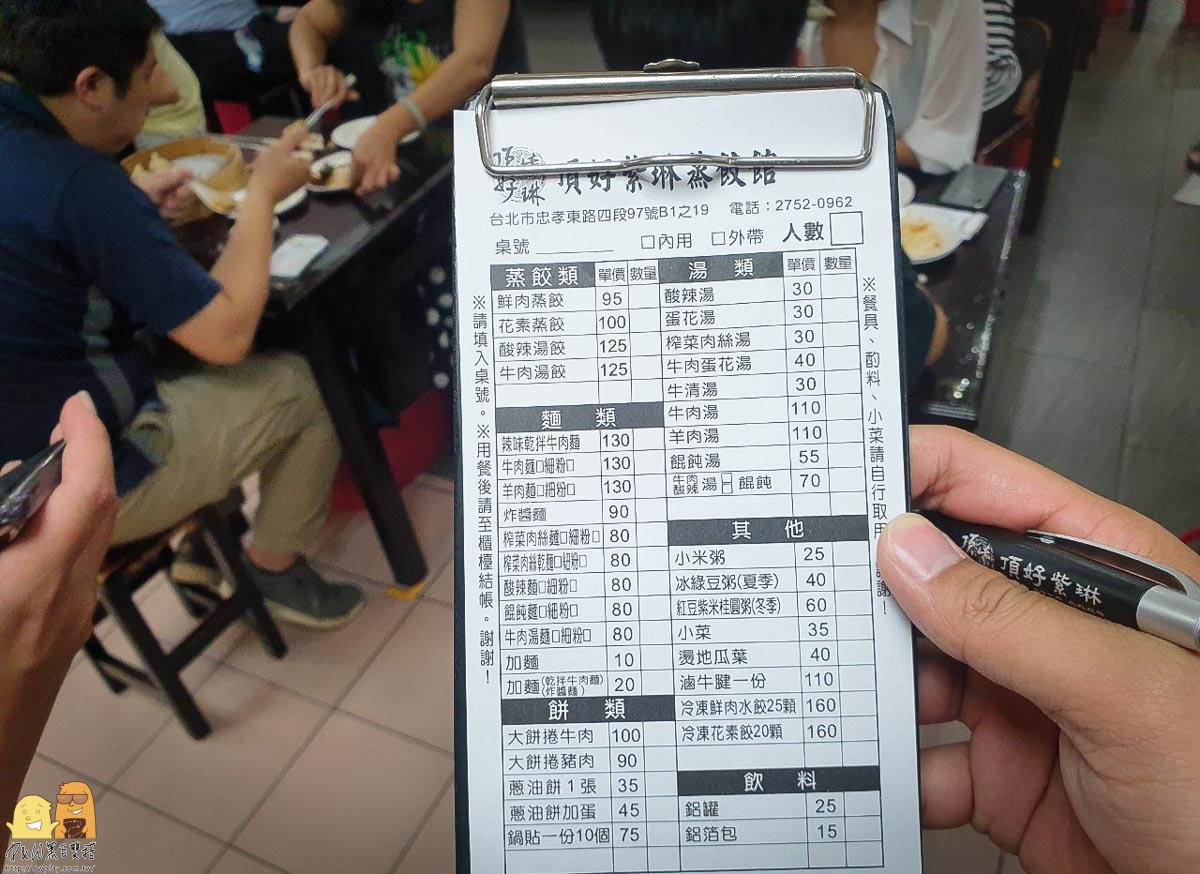 頂好紫琳蒸餃館
台北市忠孝東路四段97號B1之19 電話：2752-0962
桌號 □內用 □外帶 人數
蒸餃類 單價 數量
鮮肉蒸餃 95
花素蒸餃 100
酸辣湯餃 125
牛肉湯餃 125
麵 類
辣味乾拌牛肉麵 130
牛肉麵□細粉□ 130
羊肉麵□細粉□ 130
炸醬麵 90
榨菜肉絲麵□細粉□ 80
榨菜肉絲乾麵□細粉□ 80
酸辣麵□細粉□ 80
餛飩麵□細粉□ 80
牛肉湯麵□細粉□ 80
加麵 10
加麵(乾拌牛肉麵)(炸醬麵) 20
餅 類
大餅捲牛肉 100
大餅捲豬肉 90
蔥油餅1張 35
蔥油餅加蛋 45
鍋貼一份10個 75
湯 類 單價 數量
酸辣湯 30
蛋花湯 30
榨菜肉絲湯 30
牛肉蛋花湯 40
牛清湯 30
牛肉湯 110
羊肉湯 110
餛飩湯 55
牛肉酸辣湯□□餛飩 70
其 他
小米粥 25
冰綠豆粥(夏季) 40
紅豆紫米桂圓粥(冬季) 60
小菜 35
燙地瓜葉 40
滷牛腱一份 110
冷凍鮮肉水餃25顆 160
冷凍花素餃20顆 160
飲 料
鋁罐 25
鋁箔包 15
※請填入桌號。※用餐後請至櫃檯結帳。謝謝！
※餐具、酌料、小菜請自行取用 謝！
頂好紫琳
http://dwplay.com.tw/